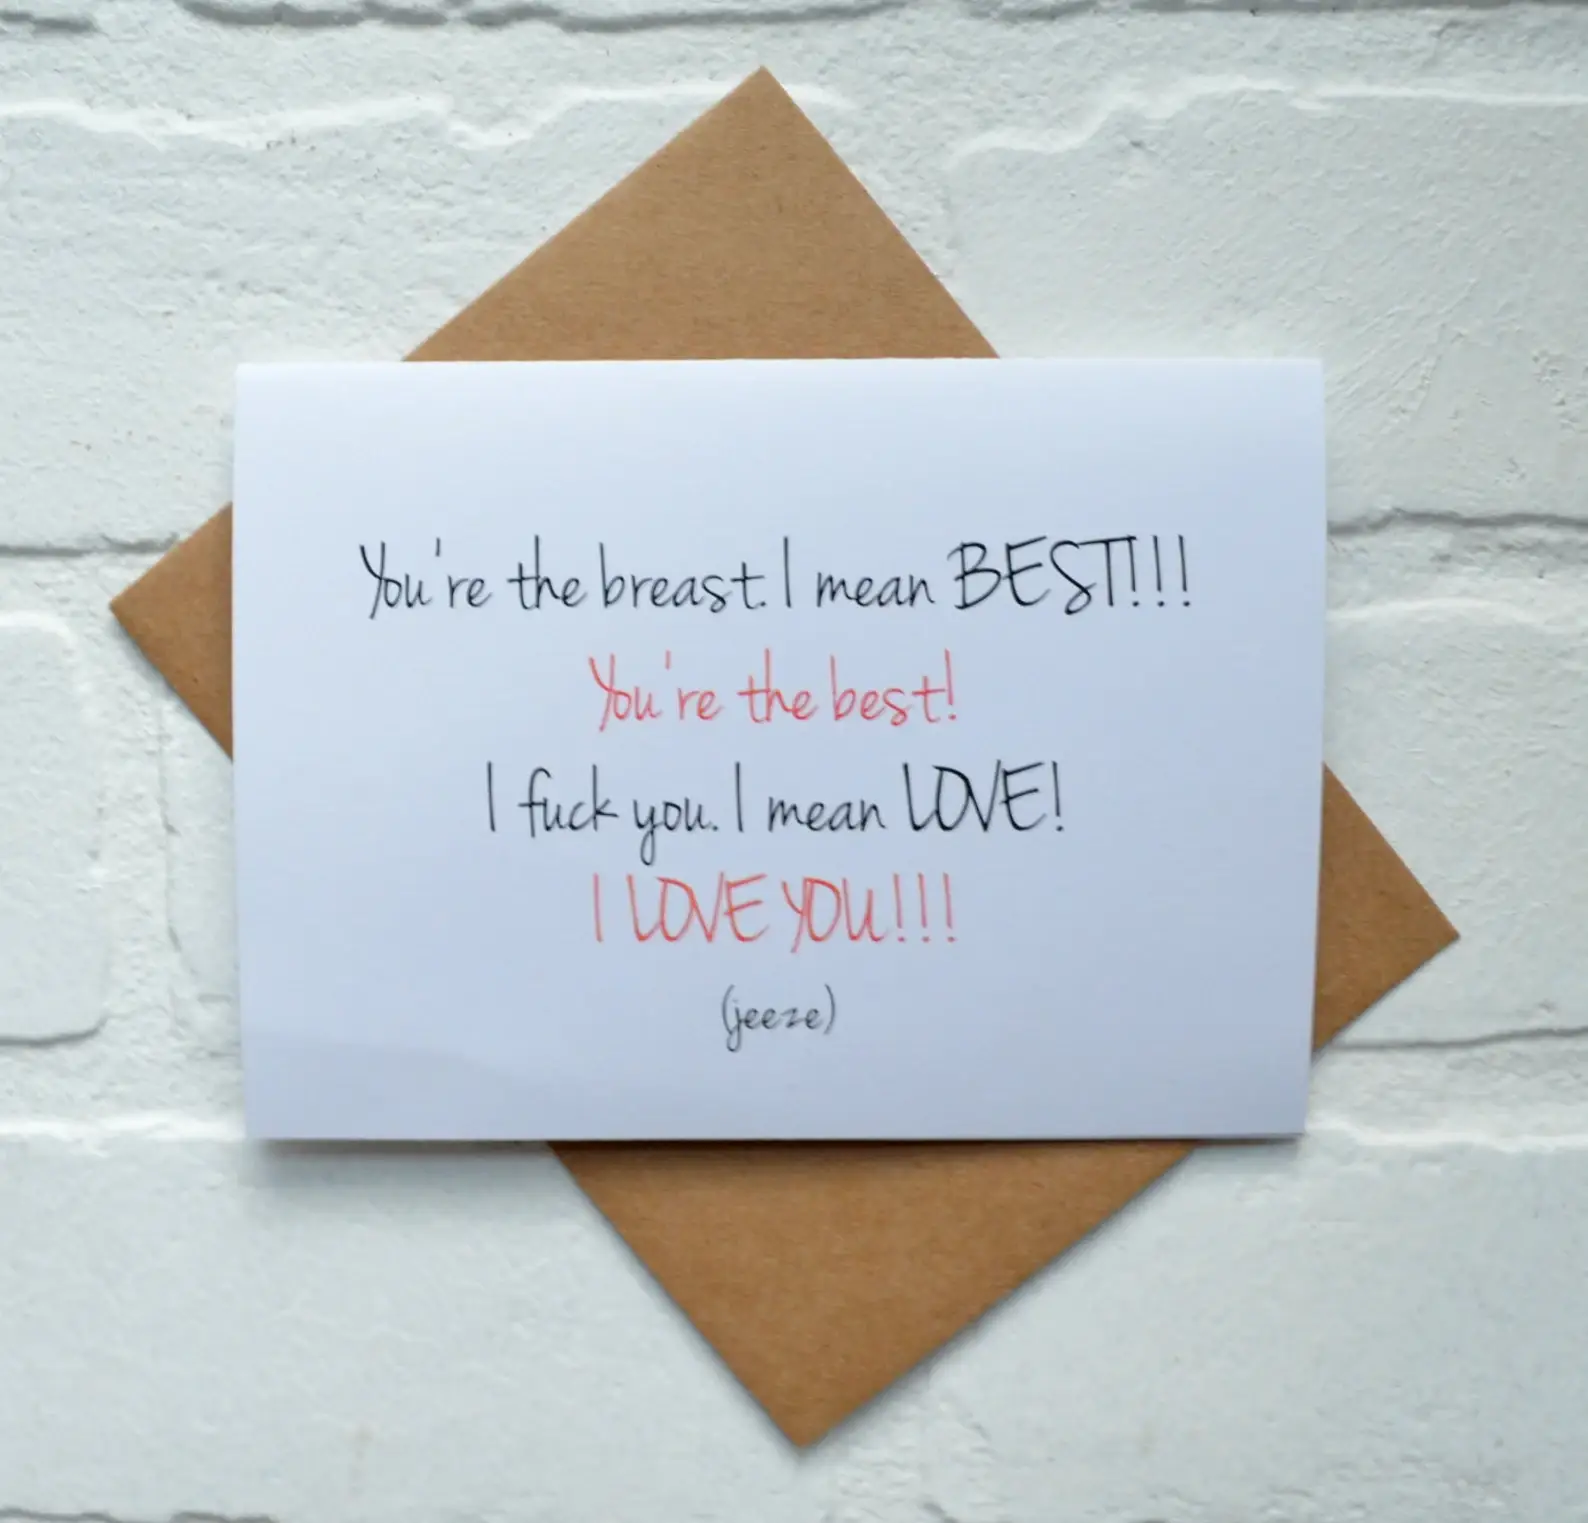 You're the breast. I mean BEST!!!
You're the best!
I fuck you. I mean LOVE!
I LOVE YOU!!!
(jeeze)